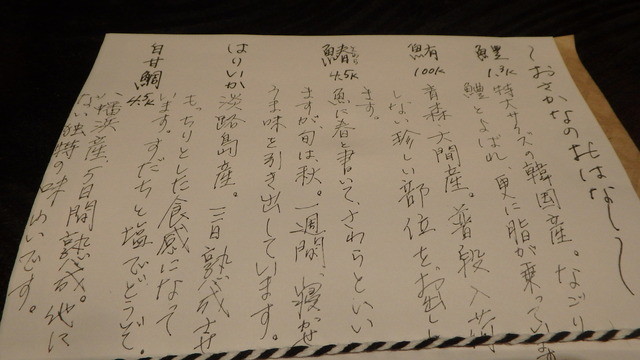 〜おさかなのおはなし〜
鱧 1.3K 特大サイズの韓国産。なごり
鱧とよばれ、更に脂が乗っていま
鮪 100K 青森大間産。普段入荷
しない珍しい部位を、お出し
ます。
鰆 4.5K 魚に春と書いて、さわらといい
ますが旬は秋。一週間、寝かせ
うま味を引き出しています。
はりいか 淡路島産。三日熟成させ
もっちりとした食感になって
います。すだちと塩でどうぞ。
白甘鯛 横浜産、五日間熟成。他に
ない独特の味わいです。